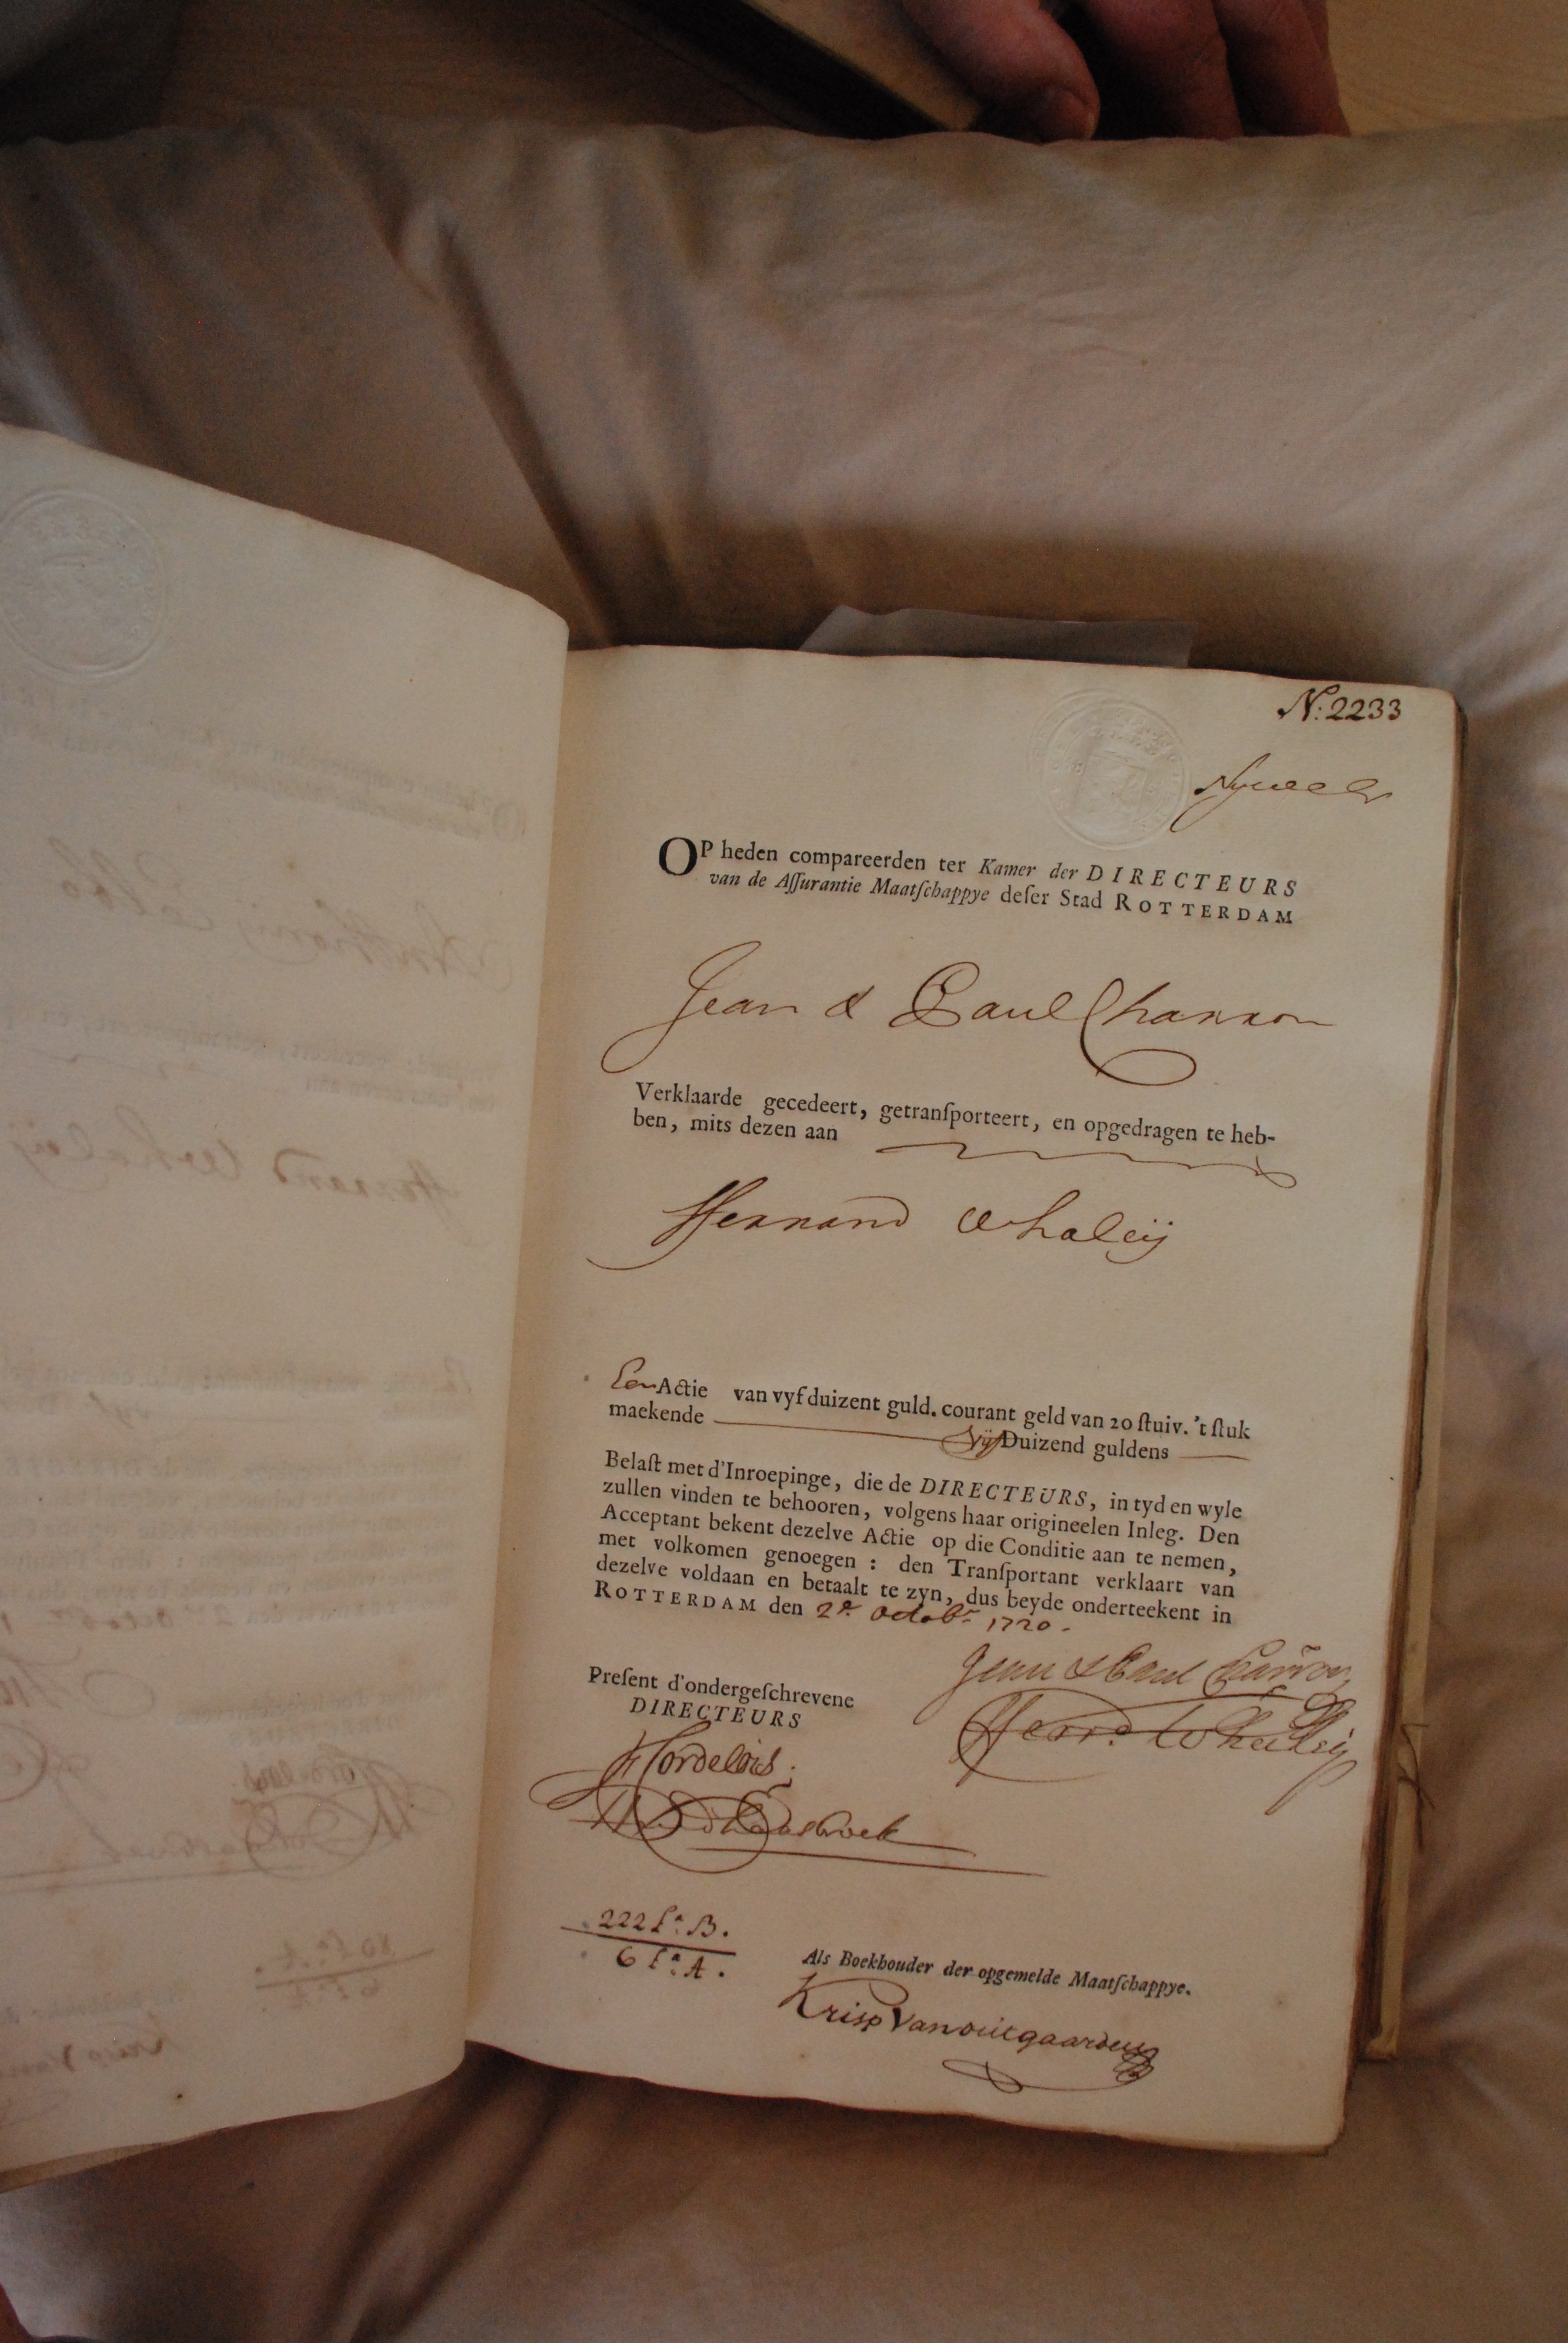 N: 2233
OP heden compareerden ter Kamer der DIRECTEURS
van de Aſſurantie Maatſchappye deſer Stad ROTTERDAM
Jean & Paul Charron
Verklaarde gecedeert, getranſporteert, en opgedragen te heb-
ben, mits dezen aan
Hernand Whaleij
Een Actie van vyf duizent guld. courant geld van 20 ſtuiv. 't ſtuk
maekende Vijf Duizend guldens
Belaſt met d'Inroepinge, die de DIRECTEURS, in tyd en wyle
zullen vinden te behooren, volgens haar origineelen Inleg. Den
Acceptant bekent dezelve Actie op die Conditie aan te nemen,
met volkomen genoegen : den Tranſportant verklaart van
dezelve voldaan en betaalt te zyn, dus beyde onderteekent in
ROTTERDAM den 2e. Octobr. 1720.
Jean & Paul Charron
Preſent d'ondergeſchrevene
DIRECTEURS
222 La. B.
6 La. A.
Als Boekhouder der opgemelde Maatſchappye.
Krisp Vanouitgaarden